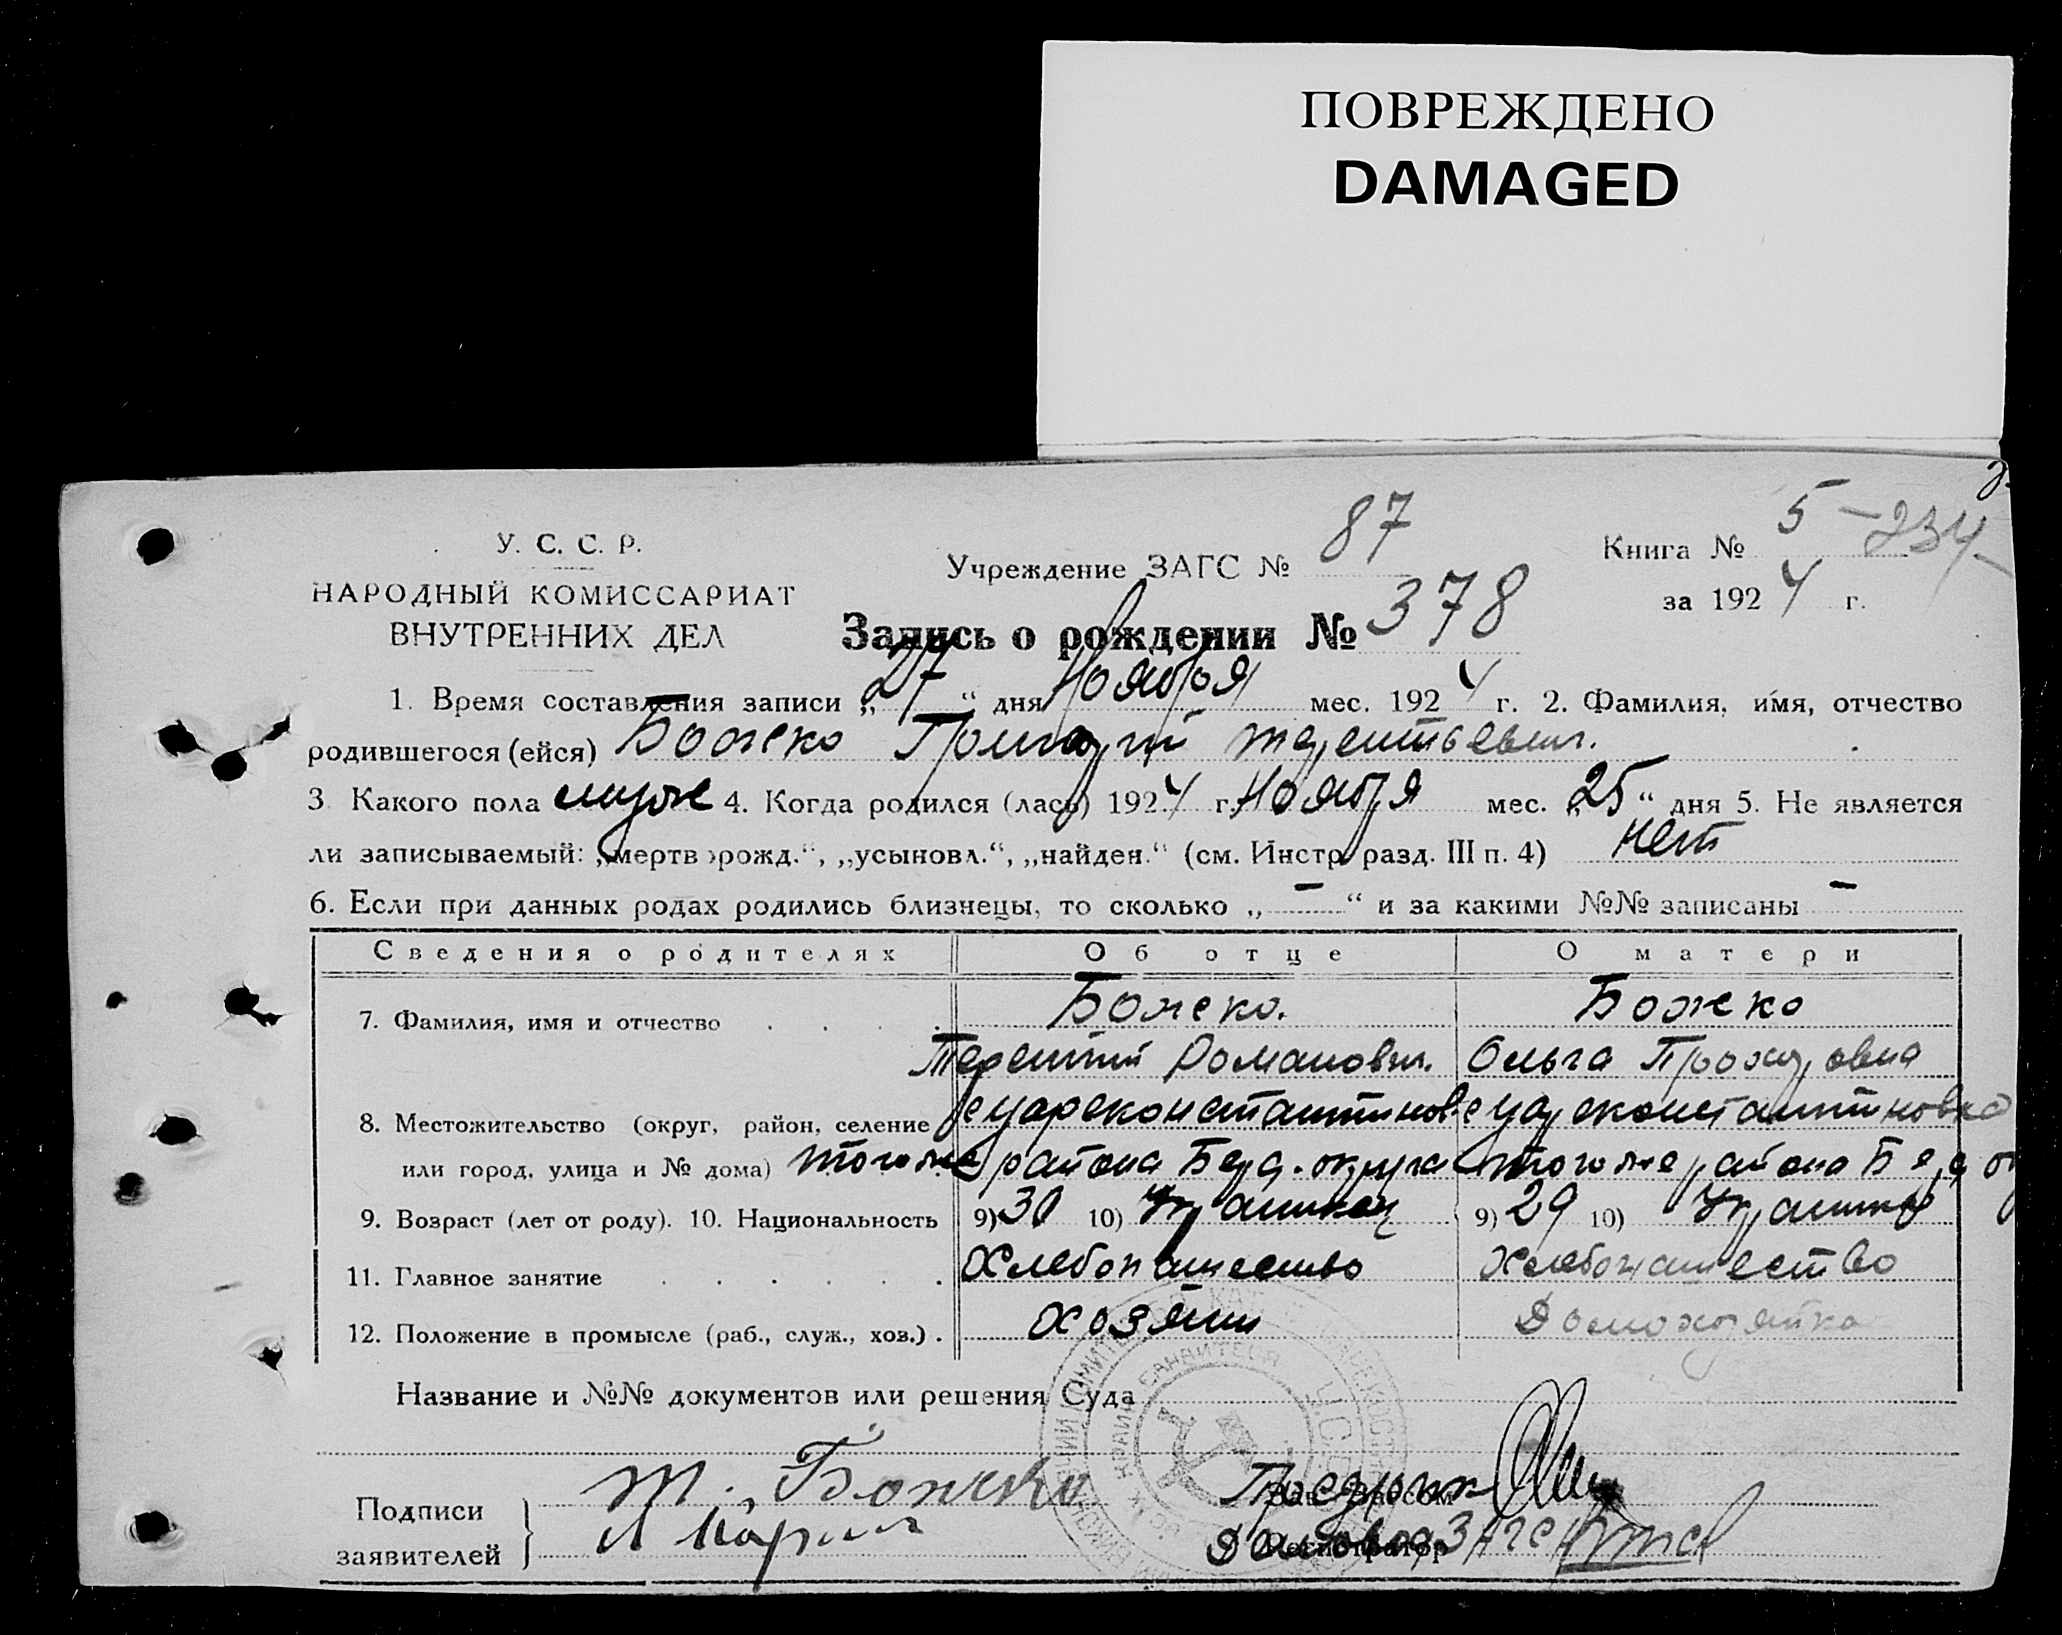 ПОВРЕЖДЕНО
DAMAGED
У. С. С. Р.
НАРОДНЫЙ КОМИССАРИАТ
ВНУТРЕННИХ ДЕЛ
Учреждение ЗАГС № 87
Книга № 5 - 234
за 1924 г.
Запись о рождении № 378
1. Время составления записи „27“ дня Ноября мес. 1924 г. 2. Фамилия, имя, отчество
родившегося (ейся) Божко Терентьевич.
3 Какого пола муж 4. Когда родился (лась) 1924 г. Ноября мес. „25“ дня 5. Не является
ли записываемый: „мертворожд.“, „усыновл.“, „найден.“ (см. Инстр. разд. III п. 4) нет
6. Если при данных родах родились близнецы, то сколько „—“ и за какими №№ записаны —
Сведения о родителях Об отце О матери
7. Фамилия, имя и отчество Божко. Божко
Терентий Романович. Ольга Прохоровна
8. Местожительство (округ, район, селение с Цареконстантиновка с Цареконстантиновка
или город, улица и № дома) тогоже района Берд. округа тогоже района Берд ок
9. Возраст (лет от роду). 10. Национальность 9) 30 10) Украинец 9) 29 10) Украинка
11. Главное занятие Хлебопашество Хлебопашество
12. Положение в промысле (раб., служ., хоз.) хозяин Домохозяйка
Название и №№ документов или решения Суда
Подписи
заявителей
Т. Божко
Предрик
Зав. Загсом
Деловод Загса
Регистратор